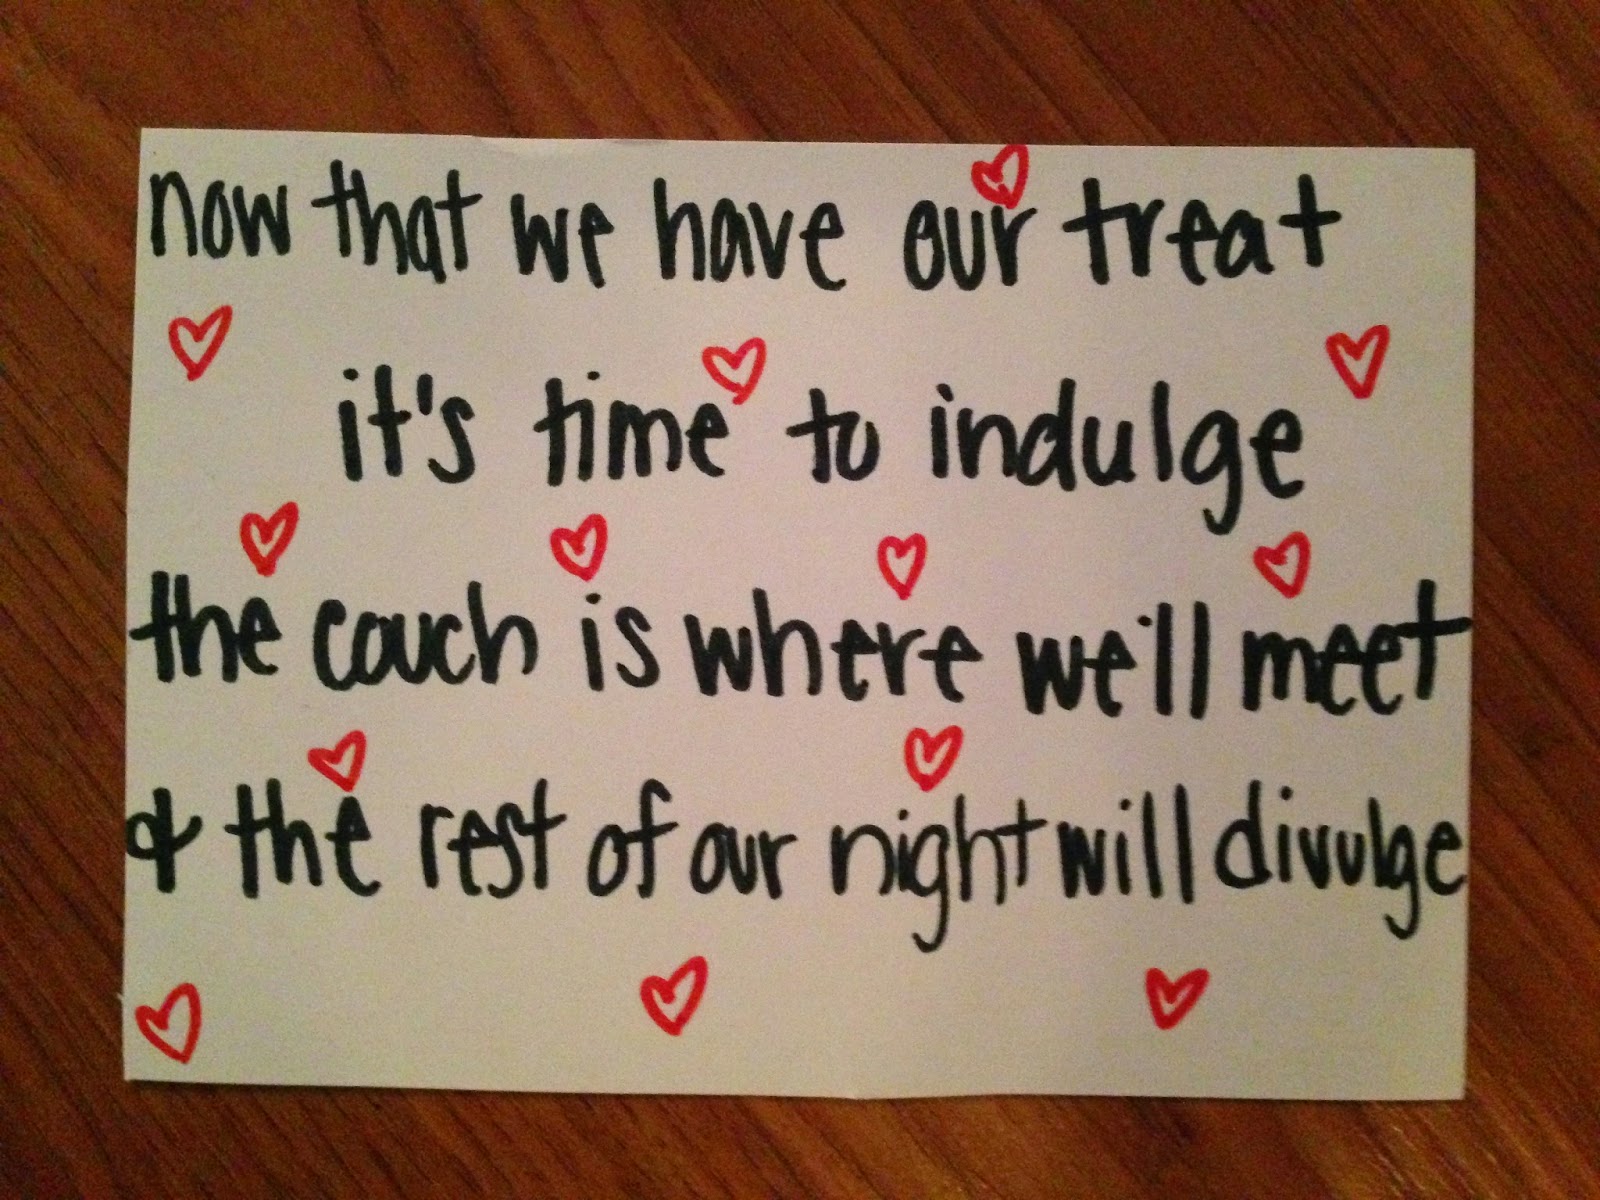 now that we have our treat
it's time to indulge
the couch is where we'll meet
& the rest of our night will divulge